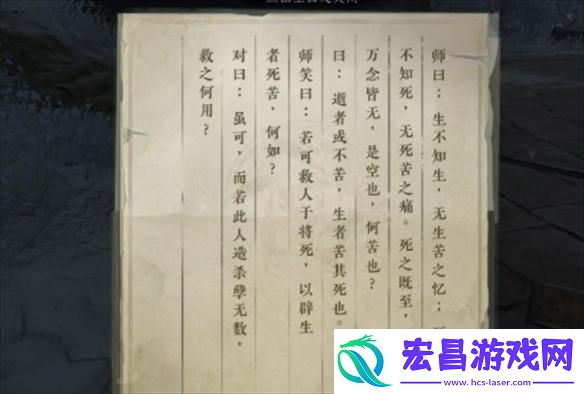 师曰：生不知生，无生苦之忆；
不知死，无死苦之痛。死之既至，
万念皆无，是空也，何苦也？
曰：逝者或不苦，生者苦其死也。
师笑曰：若可救人于将死，以辟生
者死苦，何如？
对曰：虽可，而若此人造杀孽无数，
救之何用？
宏昌游戏网
www.hcs-laser.com